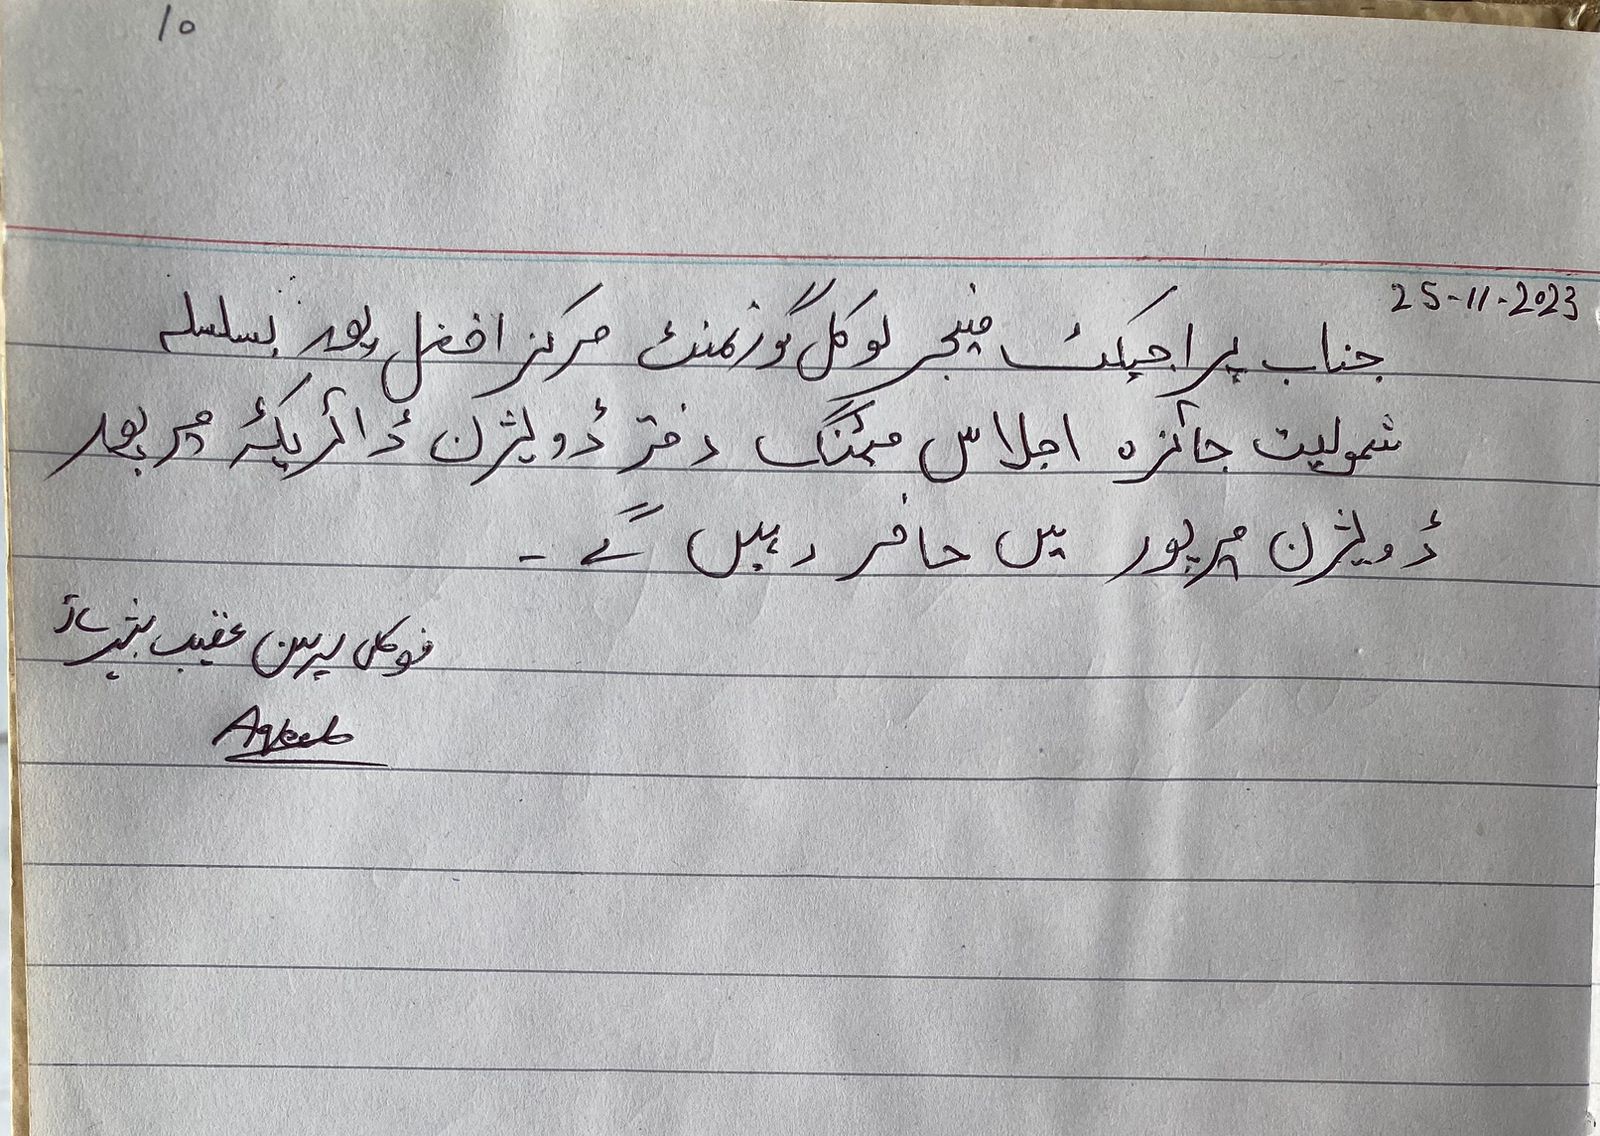 10
25-11-2023
جناب پراجیکٹ مینجر لوکل گورنمنٹ مرکز افضل پور بسلسلہ
شمولیت جائزہ اجلاس میٹنگ دفتر ڈویژن ڈائریکٹر میرپور
ڈویژن میرپور میں حاضر رہیں گے ۔
فوکل پرسن عقیب بشیر
Aqeeb